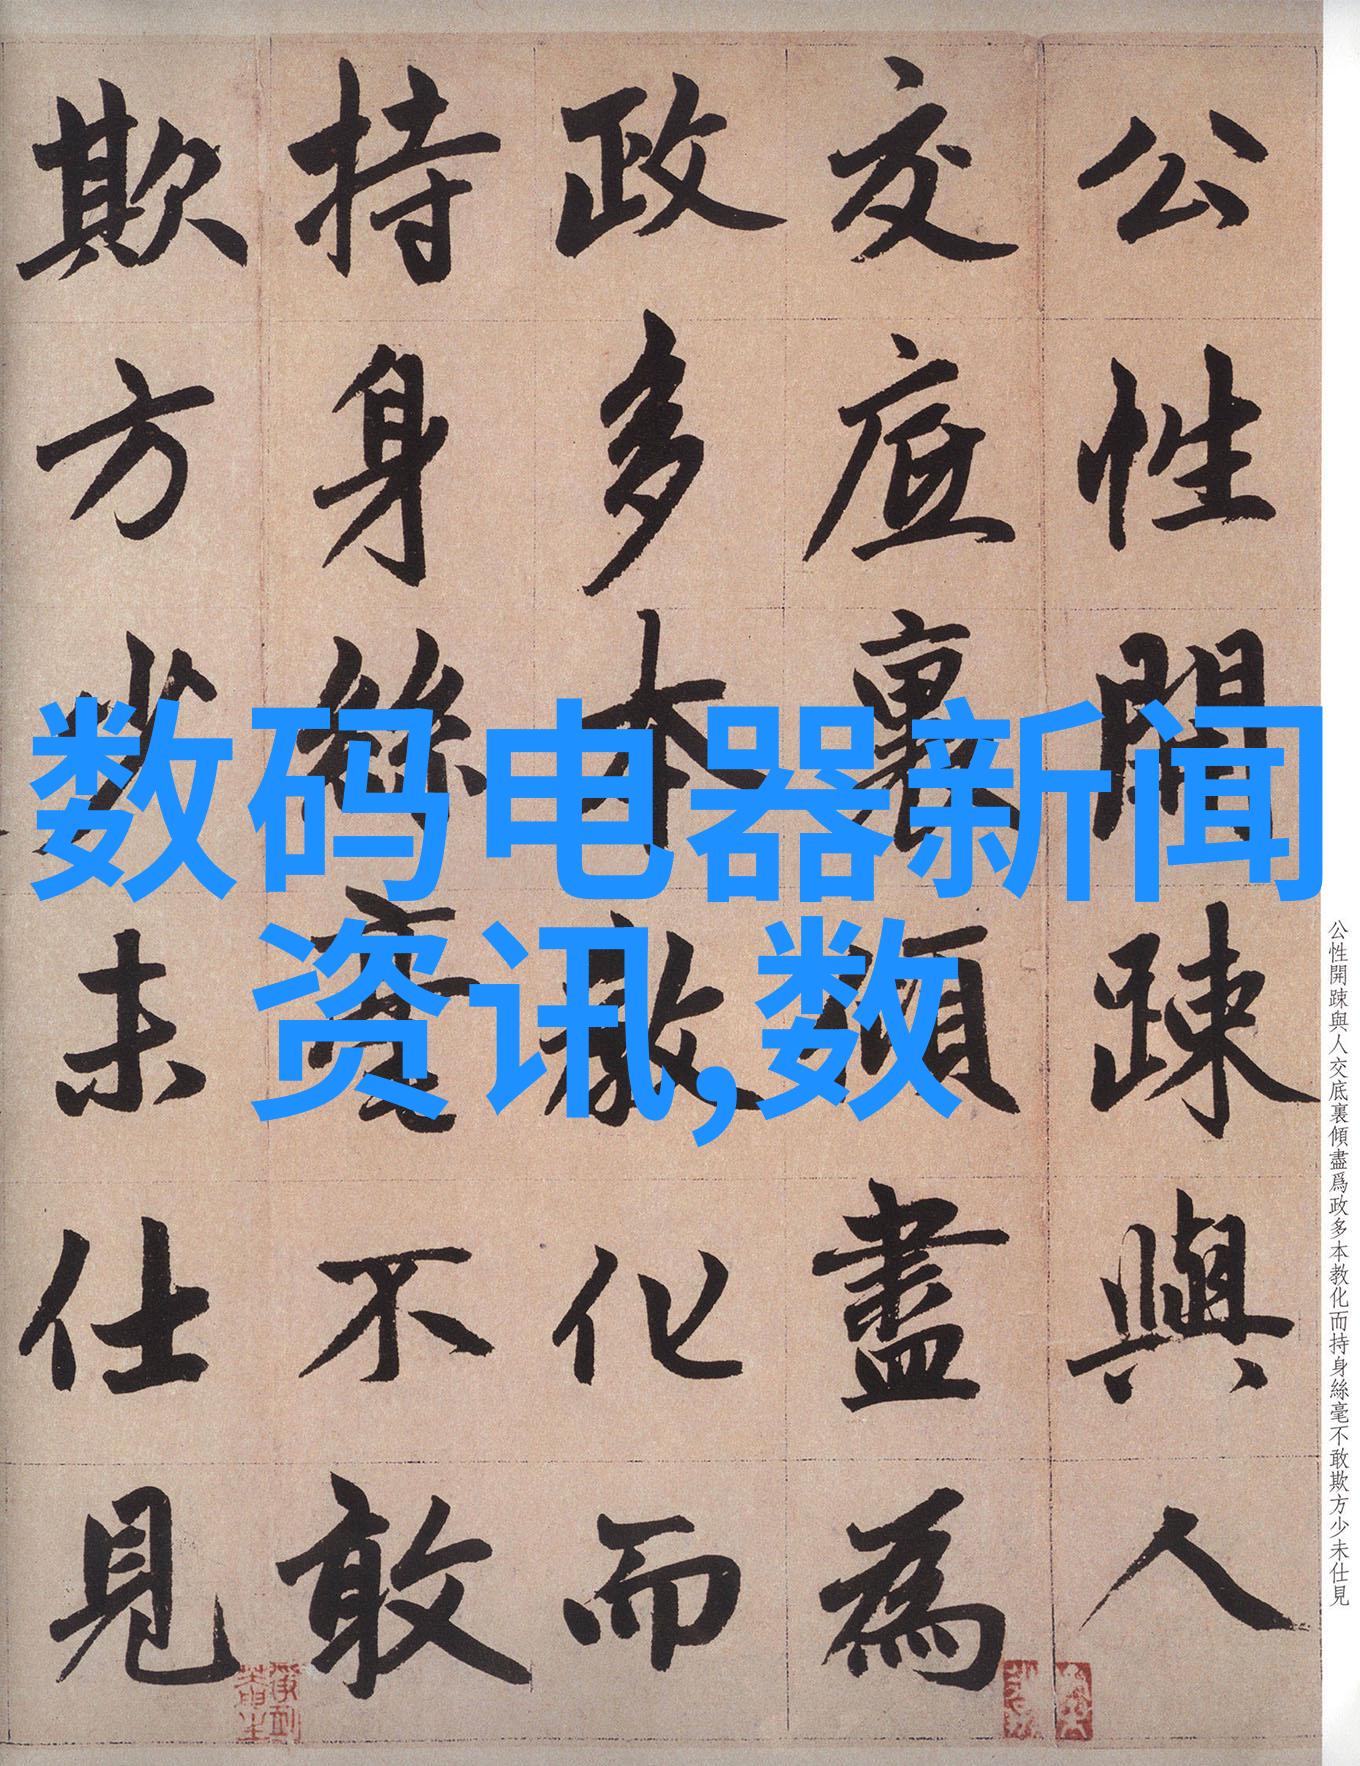 公性開踈與人
交底裏傾盡為
政多本教化而
持身絲毫不敢
欺方少未仕見
数码电器新闻
资讯,数
公性開踈與人交底裏傾盡爲政多本教化而持身絲毫不敢欺方少未仕見